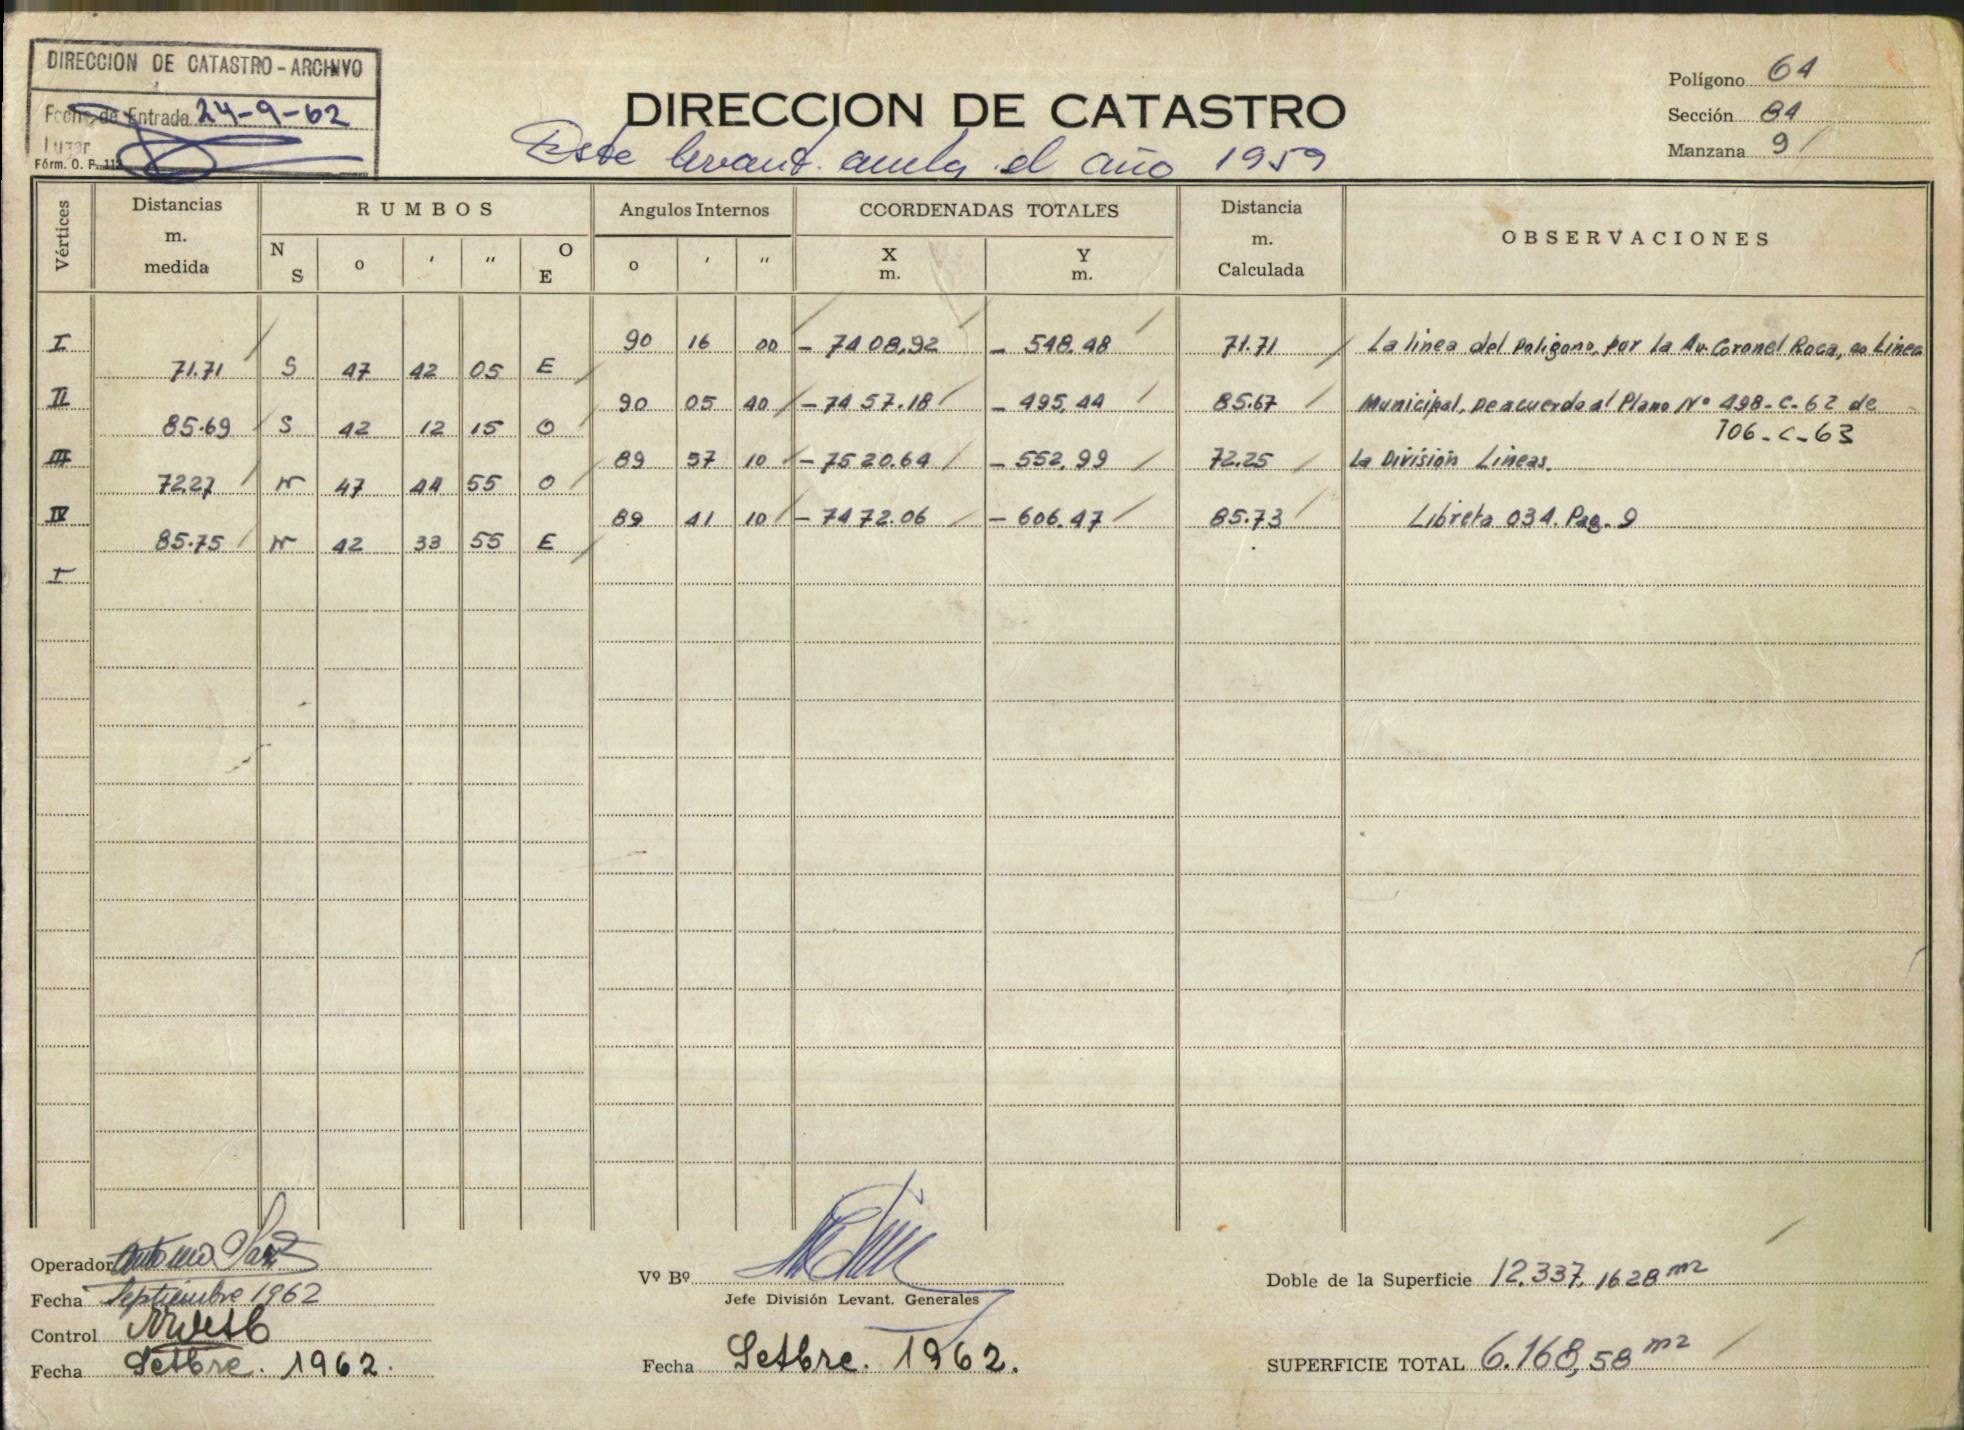 DIRECCION DE CATASTRO - ARCHIVO
Fecha de Entrada 24-9-62
Lugar
Fórm. O. P. 113
DIRECCION DE CATASTRO
Este levant. anula el año 1959
Polígono 64
Sección 84
Manzana 9
Vértices Distancias m. medida RUMBOS Angulos Internos COORDENADAS TOTALES Distancia m. Calculada OBSERVACIONES
N S o ' " O E o ' " X m. Y m.
I 90 16 00 - 7408,92 - 548.48 71.71 La linea del poligono, por la Av. Coronel Roca, es Linea
71.71 S 47 42 05 E
II 90 05 40 - 7457.18 - 495,44 85.67 Municipal, De acuerdo al Plano Nº 498-C-62 de
106-C-63
85.69 S 42 12 15 O
III 89 57 10 - 7520.64 - 552,99 72.25 La División Lineas.
72.27 N 47 44 55 O
IV 89 41 10 - 7472.06 - 606.47 85.73 Libreta 034. Pag. 9
85.75 N 42 33 55 E
I
Operador Antonio
Fecha Septiembre 1962
Control
Fecha Setbre. 1962.
Vº Bº
Jefe División Levant. Generales
Fecha Setbre. 1962.
Doble de la Superficie 12.337,1628 m2
SUPERFICIE TOTAL 6.168,58 m2